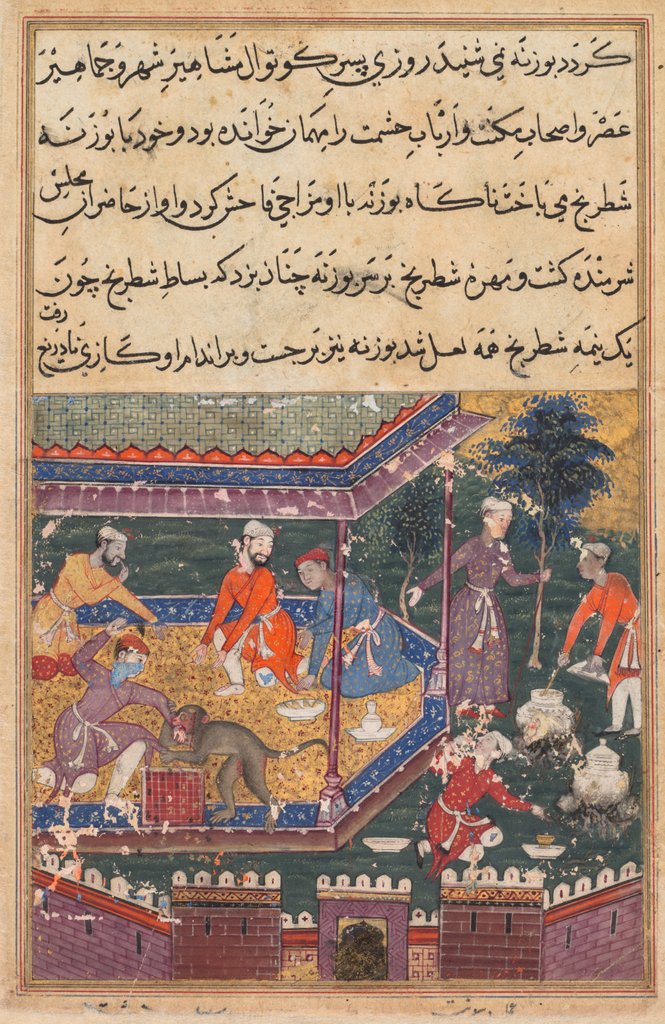 کردد بوزنه نمی شنید روزی پسر کوتوال مشاهیر شهر و جماهیر
عصر و اصحاب مکنت و ارباب حشمت را مهمان خوانده بود و خود با بوزنه
شطرنج می باخت ناکاه بوزنه با او مزاجی فاحش کرد و او از حاضران مجلس
شرمنده کشت و مهرهٔ شطرنج بر سر بوزنه چنان بزد که بساط شطرنج چون
یک نیمه شطرنج همه لعل شد بوزنه نیز برجست و بر اندام او کازی نادر رنج رفت